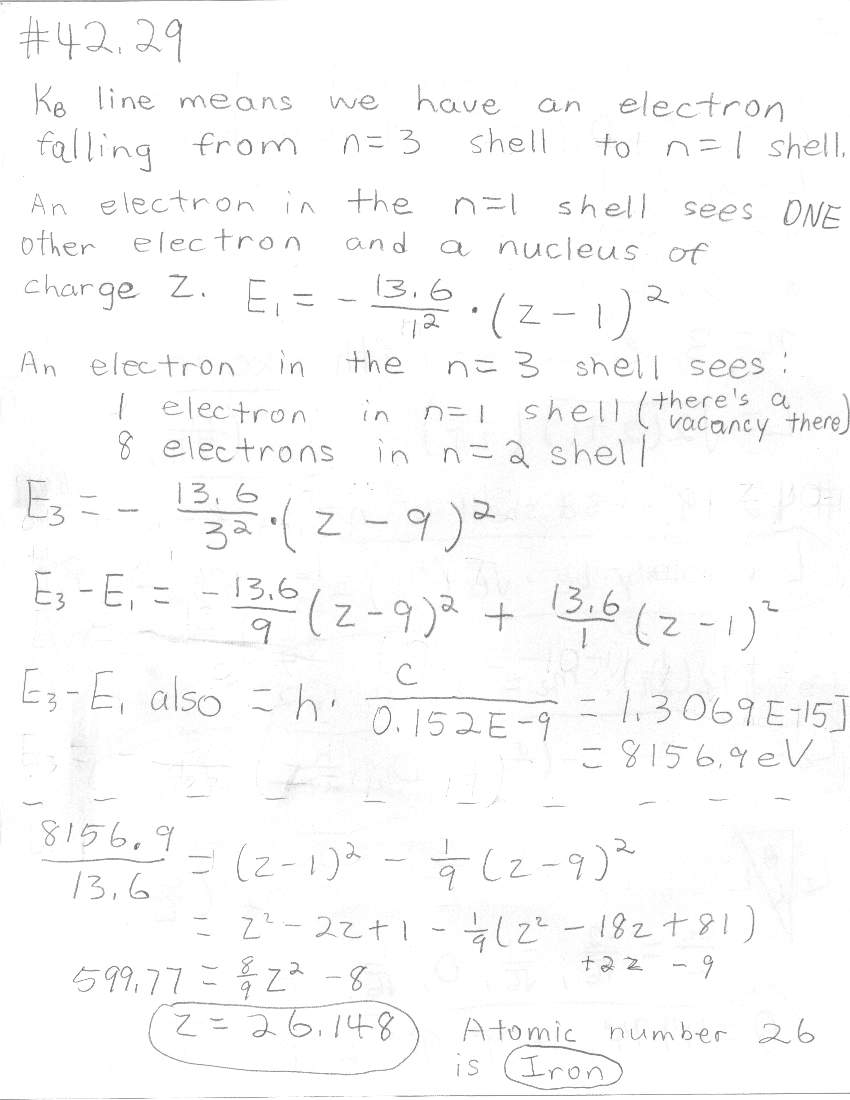 #42.29
Kβ line means we have an electron
falling from n=3 shell to n=1 shell.
An electron in the n=1 shell sees ONE
other electron and a nucleus of
charge Z. E₁ = - 13.6/1² · (z-1)²
An electron in the n=3 shell sees:
1 electron in n=1 shell (there's a vacancy there)
8 electrons in n=2 shell
E₃ = - 13.6/3² · (z-9)²
E₃-E₁ = -13.6/9 (z-9)² + 13.6/1 (z-1)²
E₃-E₁ also = h · c/0.152E-9 = 1.3069E-15J
= 8156.9eV
8156.9/13.6 = (z-1)² - 1/9 (z-9)²
= z²-2z+1 - 1/9(z²-18z+81)
+2z -9
599.77 = 8/9 z² -8
z = 26.148
Atomic number 26
is Iron